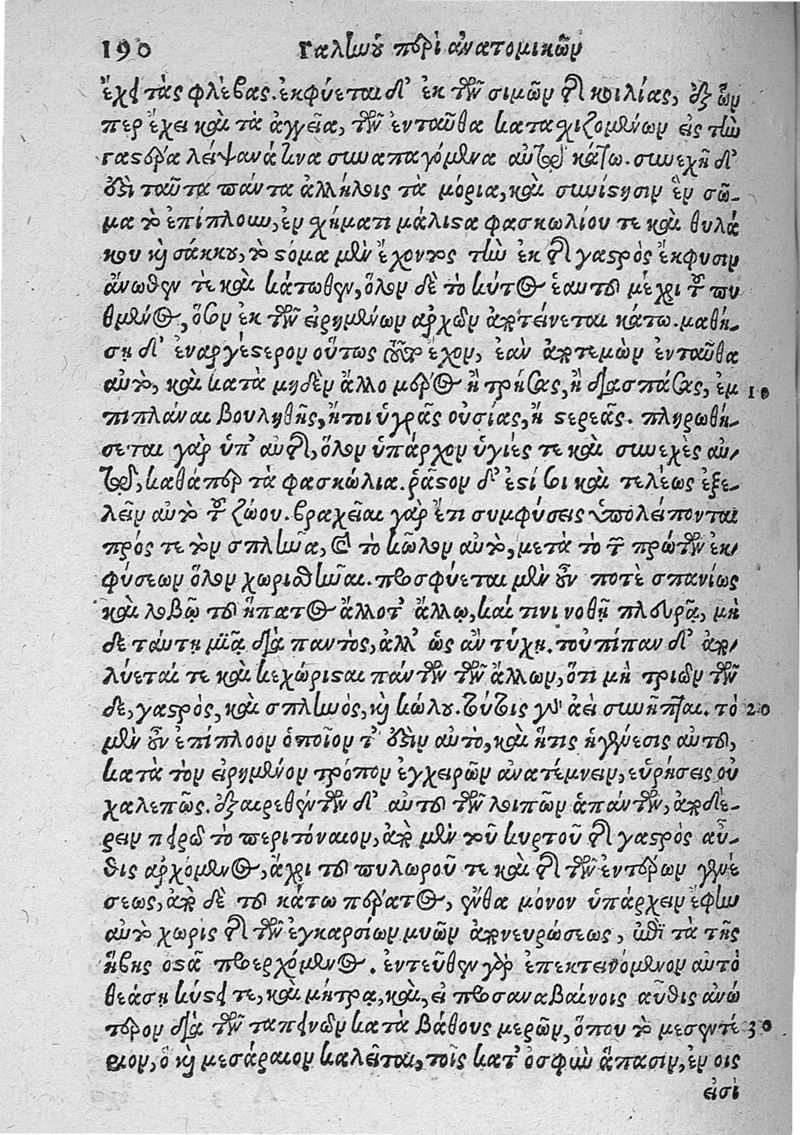 190 Γαλἰωοῦ περὶ ἀνατομικῶν
ἔχει τὰς φλέβας. ἐκφύεται δ' ἐκ τῶν σιμῶν τῆς κοιλίας, ἐξ ὧν
περ ἔχει καὶ τὰ ἀγγεῖα, τῶν ἐνταῦθα κατασχιζομένων εἰς τὴν
γαστέρα λείψανά τινα συναπαγόμενα αὐτῷ κάτω. συνεχῆ δ'
ἐστὶ ταῦτα πάντα ἀλλήλοις τὰ μόρια, καὶ συνίστησιν ἓν σῶ-
μα τὸ ἐπίπλουν, ἐν σχήματι μάλιστα φασκωλίου τε καὶ θυλά
κου καὶ σάκκου, τὸ στόμα μὲν ἔχοντος τὴν ἐκ τῆς γαστρὸς ἔκφυσιν
ἄνωθέν τε καὶ κάτωθεν, ὅλον δὲ τὸ κύτος ἑαυτοῦ μέχρι τοῦ πυ
θμένος, ὅσον ἐκ τῶν εἰρημένων ἀρχῶν ἀποτείνεται κάτω. μαθή-
ση δ' ἐναργέστερον οὕτως ἔχον, ἐὰν ἀποτεμὼν ἐνταῦθα
αὐτὸ, καὶ κατὰ μηδὲν ἄλλο μέρος ἢ τρήσας, ἢ διασπάσας, ἐμ 10
πιπλάναι βουληθῇς, ἤτοι ὑγρᾶς οὐσίας, ἢ στερεᾶς. πληρωθή-
σεται γὰρ ὑπ' αὐτῆς, ὅλον ὑπάρχον ὑγιές τε καὶ συνεχὲς αὑ-
τῷ, καθάπερ τὰ φασκώλια. ῥᾷστον δ' ἐστί σοι καὶ τελέως ἐξε-
λεῖν αὐτὸ τοῦ ζώου. βραχεῖαι γὰρ ἔτι συμφύσεις ὑπολείπονται
πρός τε τὸν σπλῆνα, καὶ τὸ κῶλον αὐτὸ, μετὰ τὸ τῶν πρώτων ἐκ-
φύσεων ὅλον χωρισθῆναι. προσφύεται μὲν οὖν ποτὲ σπανίως
καὶ λοβῷ τοῦ ἥπατος ἄλλοτ' ἄλλῳ, καί τινι νοθῇ πλευρᾷ, μὴ
δὲ ταύτῃ μιᾷ διὰ παντὸς, ἀλλ' ὡς ἂν τύχῃ. τοὐπίπαν δ' ἀπο-
λύεταί τε καὶ κεχώρισται πάντων τῶν ἄλλων, ὅτι μὴ τριῶν τῶν
δε, γαστρὸς, καὶ σπληνὸς, καὶ κώλου. τούτοις γὰρ ἀεὶ συνῆπται. τὸ 20
μὲν οὖν ἐπίπλοον ὁποῖόν τ' ἐστὶν αὐτὸ, καὶ ἥτις ἡ γένεσις αὐτοῦ,
κατὰ τὸν εἰρημένον τρόπον ἐγχειρῶν ἀνατέμνειν, εὑρήσεις οὐ
χαλεπῶς. ἐξαιρεθέντων δ' αὐτοῦ τῶν λοιπῶν ἁπάντων, ἀποδέ-
ρειν πειρῶ τὸ περιτόναιον, ἀπὸ μὲν τοῦ κυρτοῦ τῆς γαστρὸς αὖ-
θις ἀρχόμενος, ἄχρι τοῦ πυλωροῦ τε καὶ τῆς τῶν ἐντέρων γενέ
σεως, ἀπὸ δὲ τοῦ κάτω πέρατος, ἔνθα μόνον ὑπάρχειν ἔφην
αὐτὸ χωρὶς τῆς τῶν ἐγκαρσίων μυῶν ἀπονευρώσεως, ἐπὶ τὰ τῆς
ἥβης ὀστᾶ προερχόμενος. ἐντεῦθεν γὰρ ἐπεκτεινόμενον αὐτὸ
θεάσῃ κύστει τε, καὶ μήτρᾳ, καὶ, εἰ προσαναβαίνοις αὖθις ἀνώ
τερον διὰ τῶν ταπεινῶν κατὰ βάθους μερῶν, ὅπου τὸ μεσεντέ 30
ριον, ὃ καὶ μεσάραιον καλεῖται, τοῖς κατ' ὀσφὺν ἅπασιν, ἐν οἷς
εἰσὶ